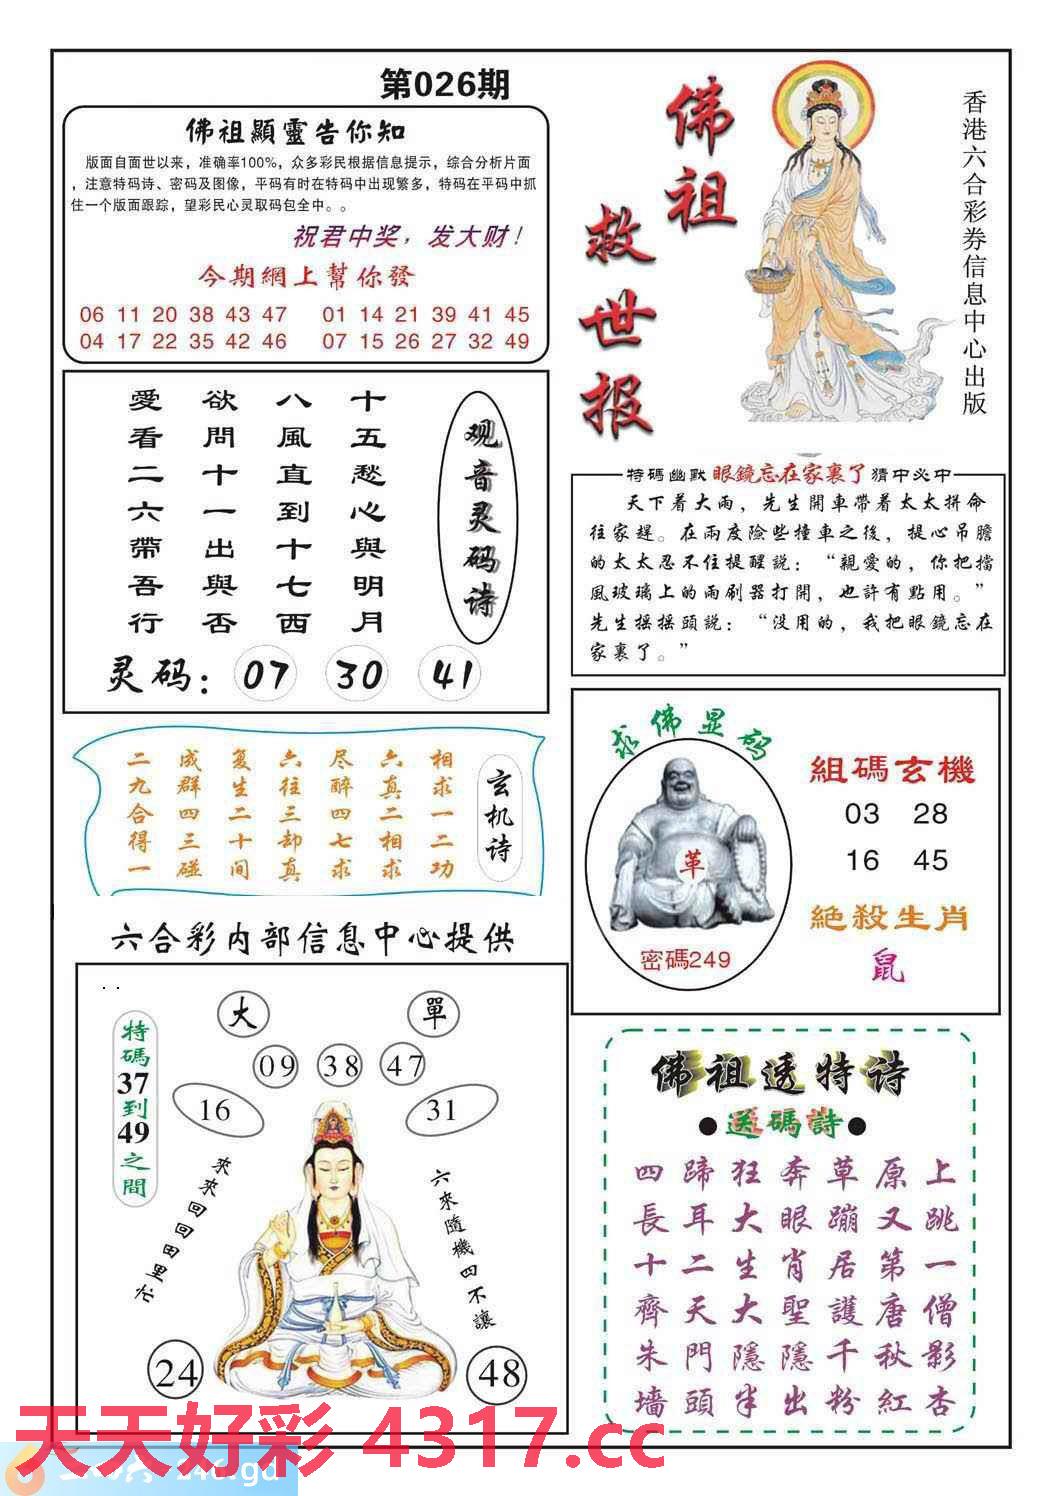 第026期
佛祖顯靈告你知
版面自面世以来，准确率100%，众多彩民根据信息提示，综合分析片面
，注意特码诗、密码及图像，平码有时在特码中出现繁多，特码在平码中抓
住一个版面跟踪，望彩民心灵取码包全中。。
祝君中奖，发大财！
今期網上幫你發
06 11 20 38 43 47 01 14 21 39 41 45
04 17 22 35 42 46 07 15 26 27 32 49
佛祖
救世报
香港六合彩券信息中心出版
观音灵码诗
十五愁心與明月
八風直到十七西
欲問十一出與否
愛看二六帶吾行
灵码：07 30 41
特碼幽默 眼鏡忘在家裏了 猜中必中
天下着大雨，先生開車帶着太太拼命
往家趕。在兩度險些撞車之後，提心吊膽
的太太忍不住提醒説：“親愛的，你把擋
風玻璃上的雨刷器打開，也許有點用。”
先生摇摇頭説：“没用的，我把眼鏡忘在
家裏了。”
玄机诗
相求一二功
六真二相求
尽醉四七求
六往三却真
复生二十间
成群四三碰
二九合得一
求佛显码
革
密碼249
組碼玄機
03 28
16 45
絶殺生肖
鼠
六合彩内部信息中心提供
大 單
09 38 47
16 31
特碼37到49之間
來來回回田里忙
六來隨機四不讓
24 48
佛祖透特诗
●送碼詩●
四蹄狂奔草原上
長耳大眼蹦又跳
十二生肖居第一
齊天大聖護唐僧
朱門隱隱千秋影
墻頭半出粉紅杏
天天好彩 4317.cc
246.gd